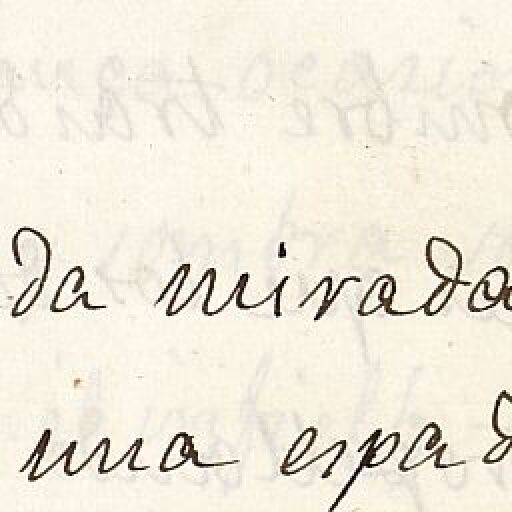 da mirada
una espad